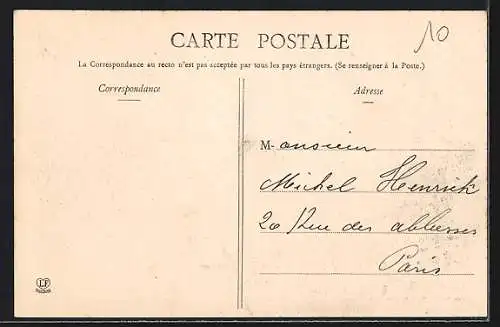 10
CARTE POSTALE
La Correspondance au recto n'est pas acceptée par tous les pays étrangers. (Se renseigner à la Poste.)
Correspondance
Adresse
M-onsieur
Michel Henrick
20 Rue des abbesses
Paris